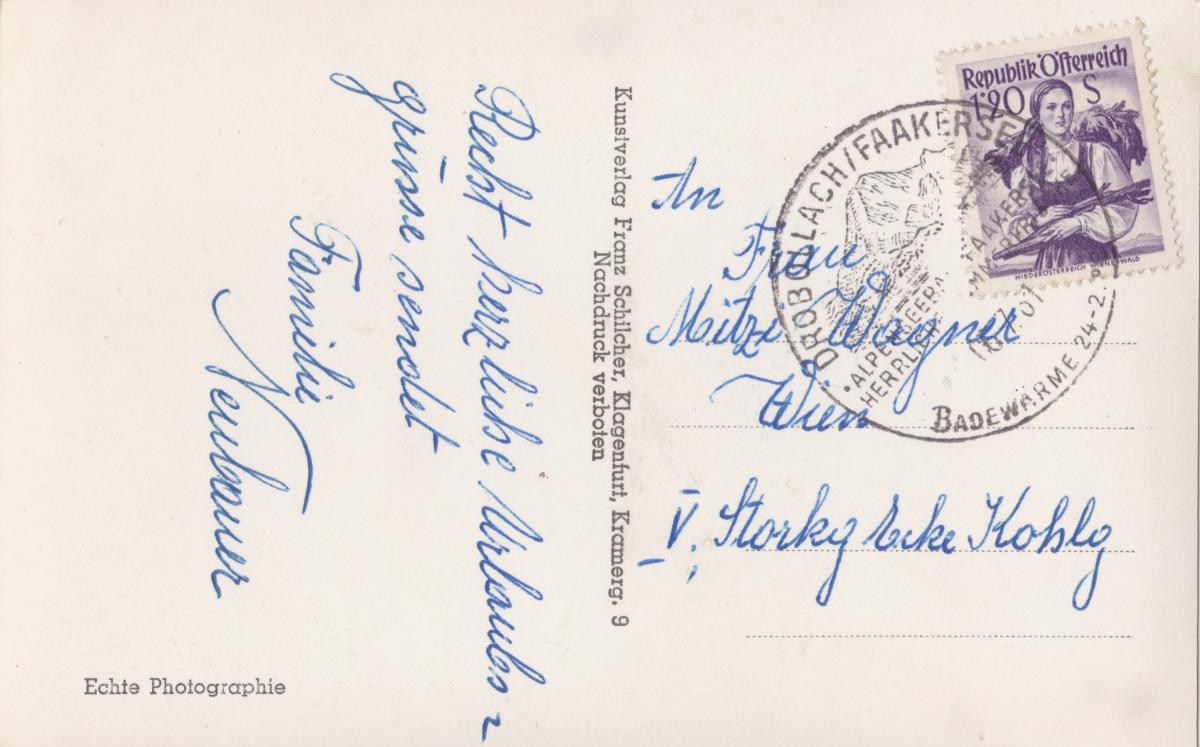 Recht herzliche Urlaubs=
grüsse sendet
Familie
Neubauer
Echte Photographie
Kunstverlag Franz Schilcher, Klagenfurt, Kramerg. 9
Nachdruck verboten
Republik Österreich
1·20 S
NIEDERÖSTERREICH WIENERWALD
DROBOLLACH/FAAKERSEE
BADEWÄRME 24-2
An
Frau
Mitzi Wagner
Wien
V. Storkg Ecke Kohlg